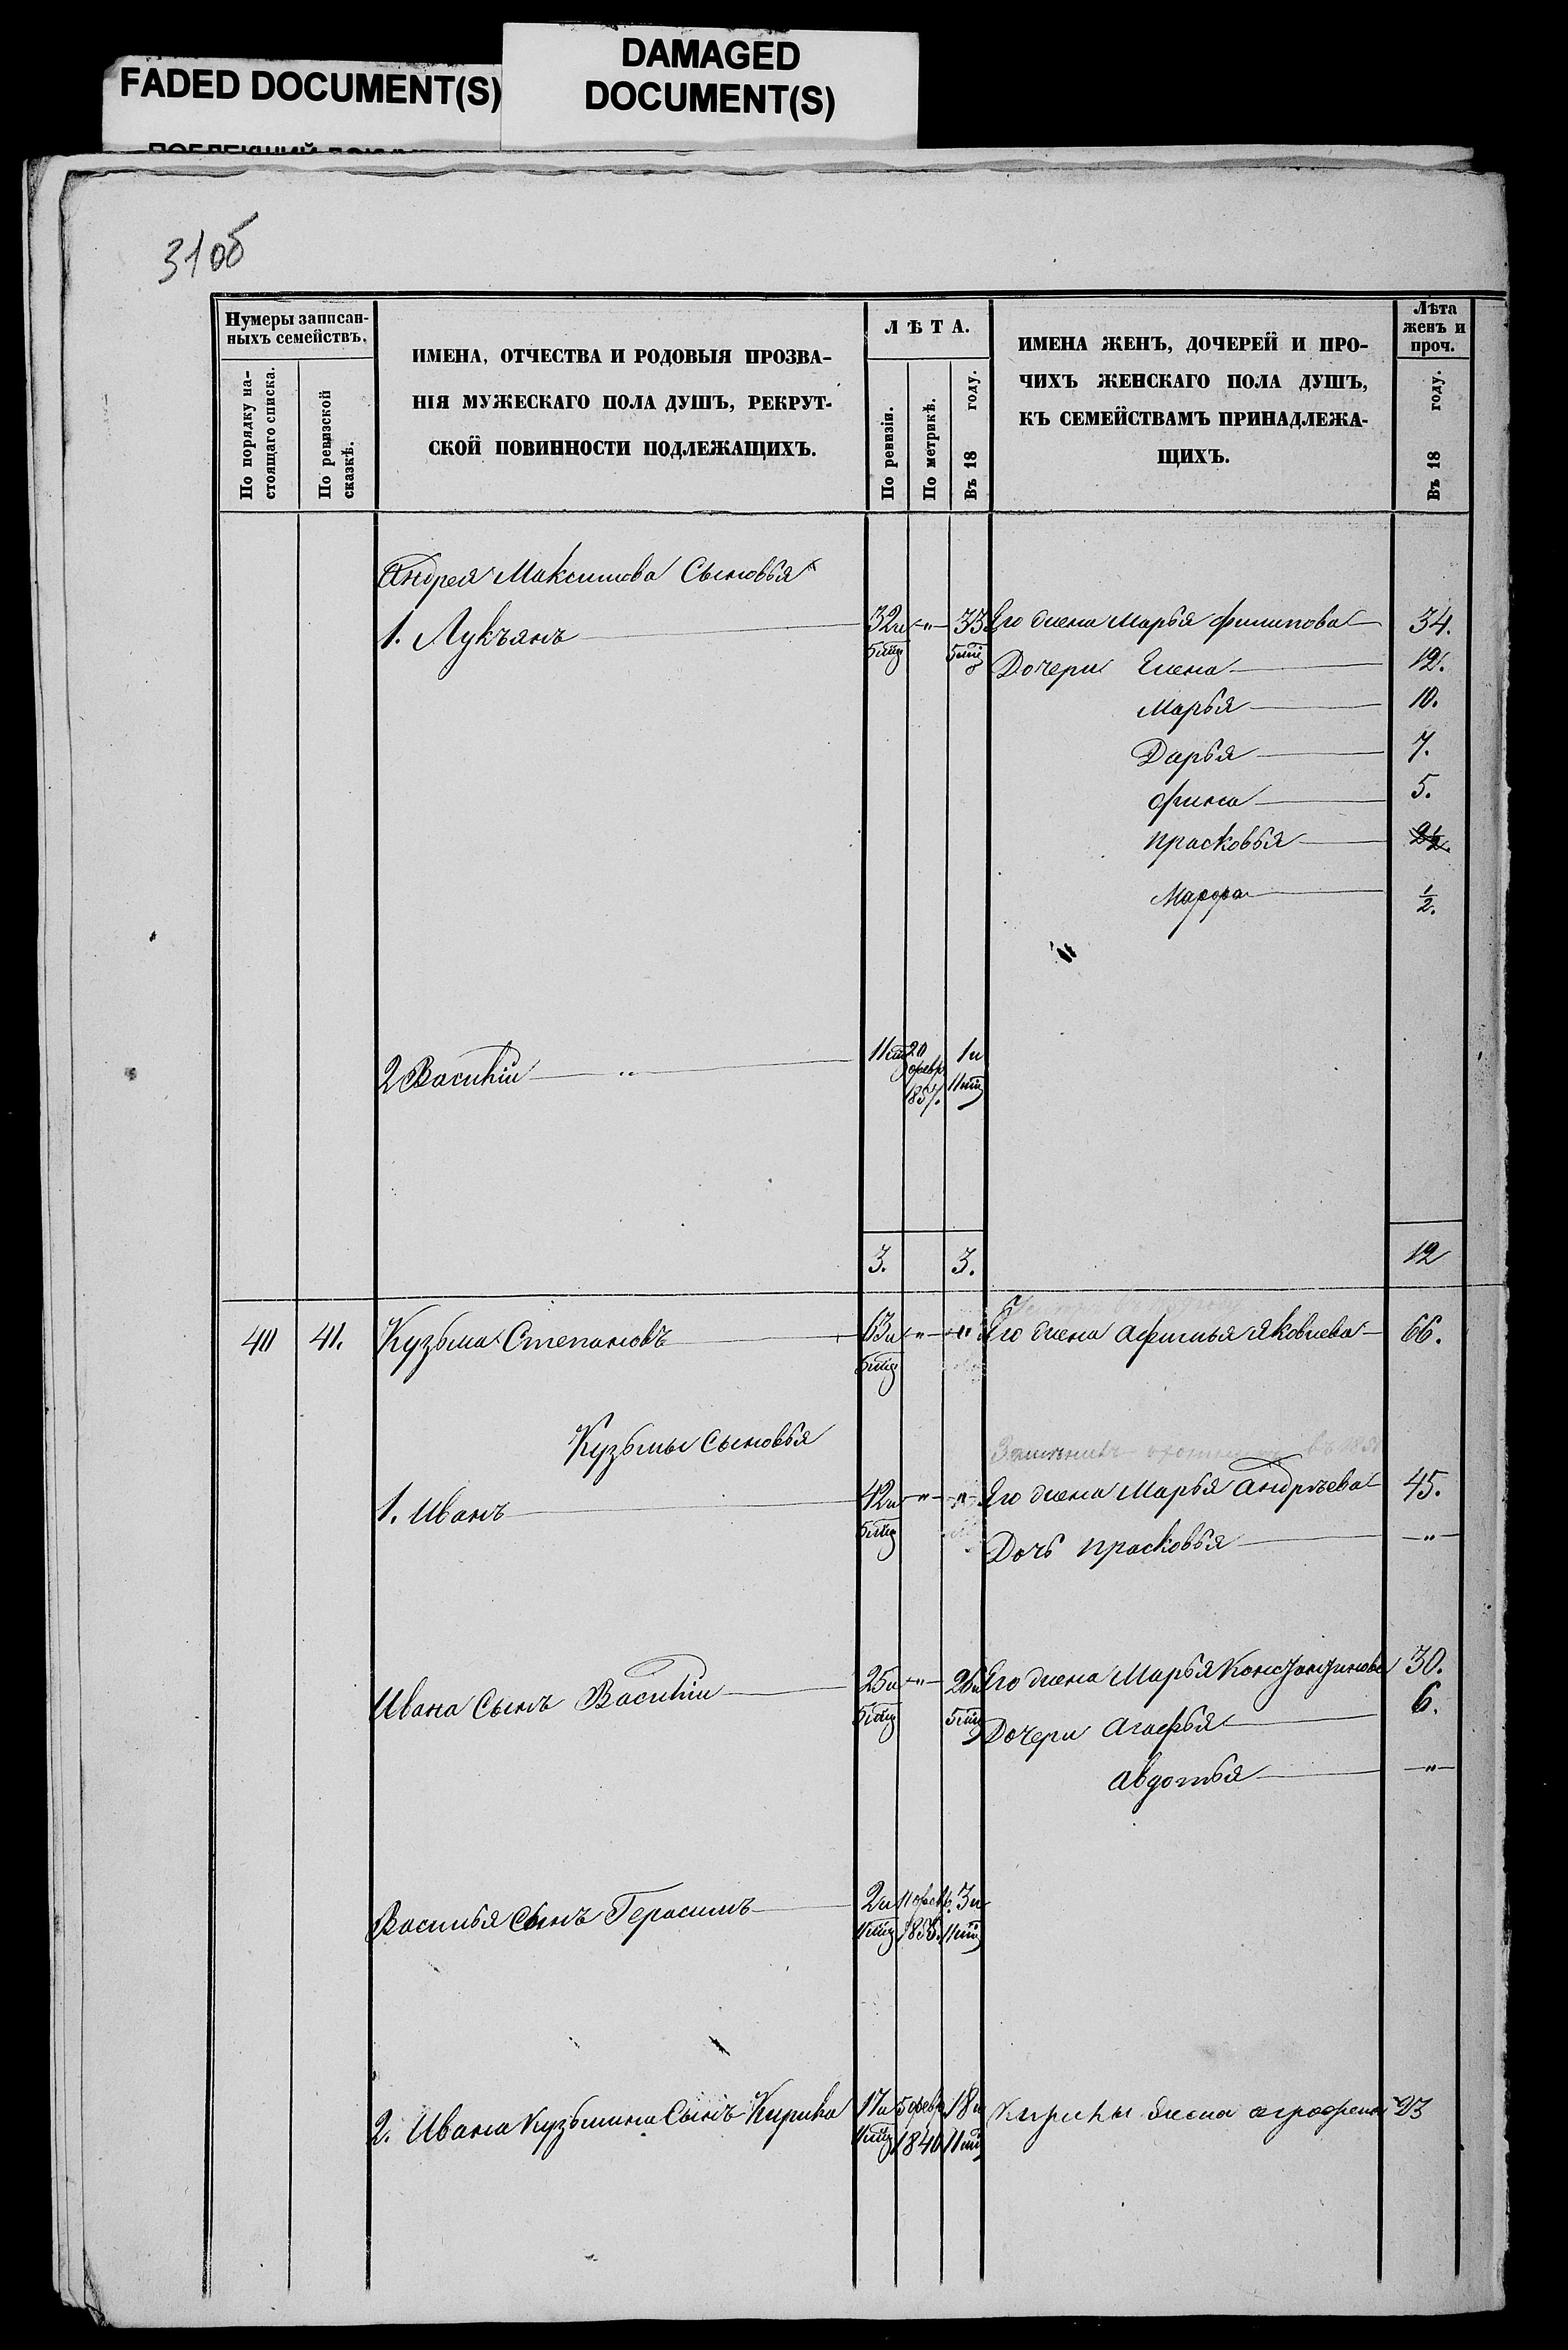 FADED DOCUMENT(S)
DAMAGED
DOCUMENT(S)
31об
Нумеры записан-
ныхъ семействъ.
По порядку на-
стоящаго списка.
По ревизской
сказкѣ.
ИМЕНА, ОТЧЕСТВА И РОДОВЫЯ ПРОЗВА-
НІЯ МУЖЕСКАГО ПОЛА ДУШЪ, РЕКРУТ-
СКОЙ ПОВИННОСТИ ПОДЛЕЖАЩИХЪ.
ЛѢТА.
По ревизіи.
По метрикѣ.
Въ 18 году.
ИМЕНА ЖЕНЪ, ДОЧЕРЕЙ И ПРО-
ЧИХЪ ЖЕНСКАГО ПОЛА ДУШЪ,
КЪ СЕМЕЙСТВАМЪ ПРИНАДЛЕЖА-
ЩИХЪ.
Лѣта
женъ и
проч.
Въ 18 году.
Андрея Максимова Сыновья
1. Лукъянъ 32 " 33 Его жена Марья Филипова 34.
Дочери Елена 12.
Марья 10.
Дарья 7.
Орина 5.
Прасковья
Марфа 1/2.
2 Василій " 11 20 1
февр 11
185
3. 3. 12
40 41. Кузьма Степановъ 63 " " Его жена Афимья Яковлева 66.
Кузьмы Сыновья
1. Иванъ 42 " " Его жена Марья Андрѣева 45.
Дочь Прасковья "
Ивана Сынъ Василій 25 " 26 Его жена Марья Константинова 30.
Дочери Агафья 6.
Авдотья "
Василья Сынъ Герасимъ 2 11 февр. 3
11 185 11
2. Ивана Кузьмина Сынъ Кирика 17 5 февр 18 Кирики жена аграфена 23
11 1840 11